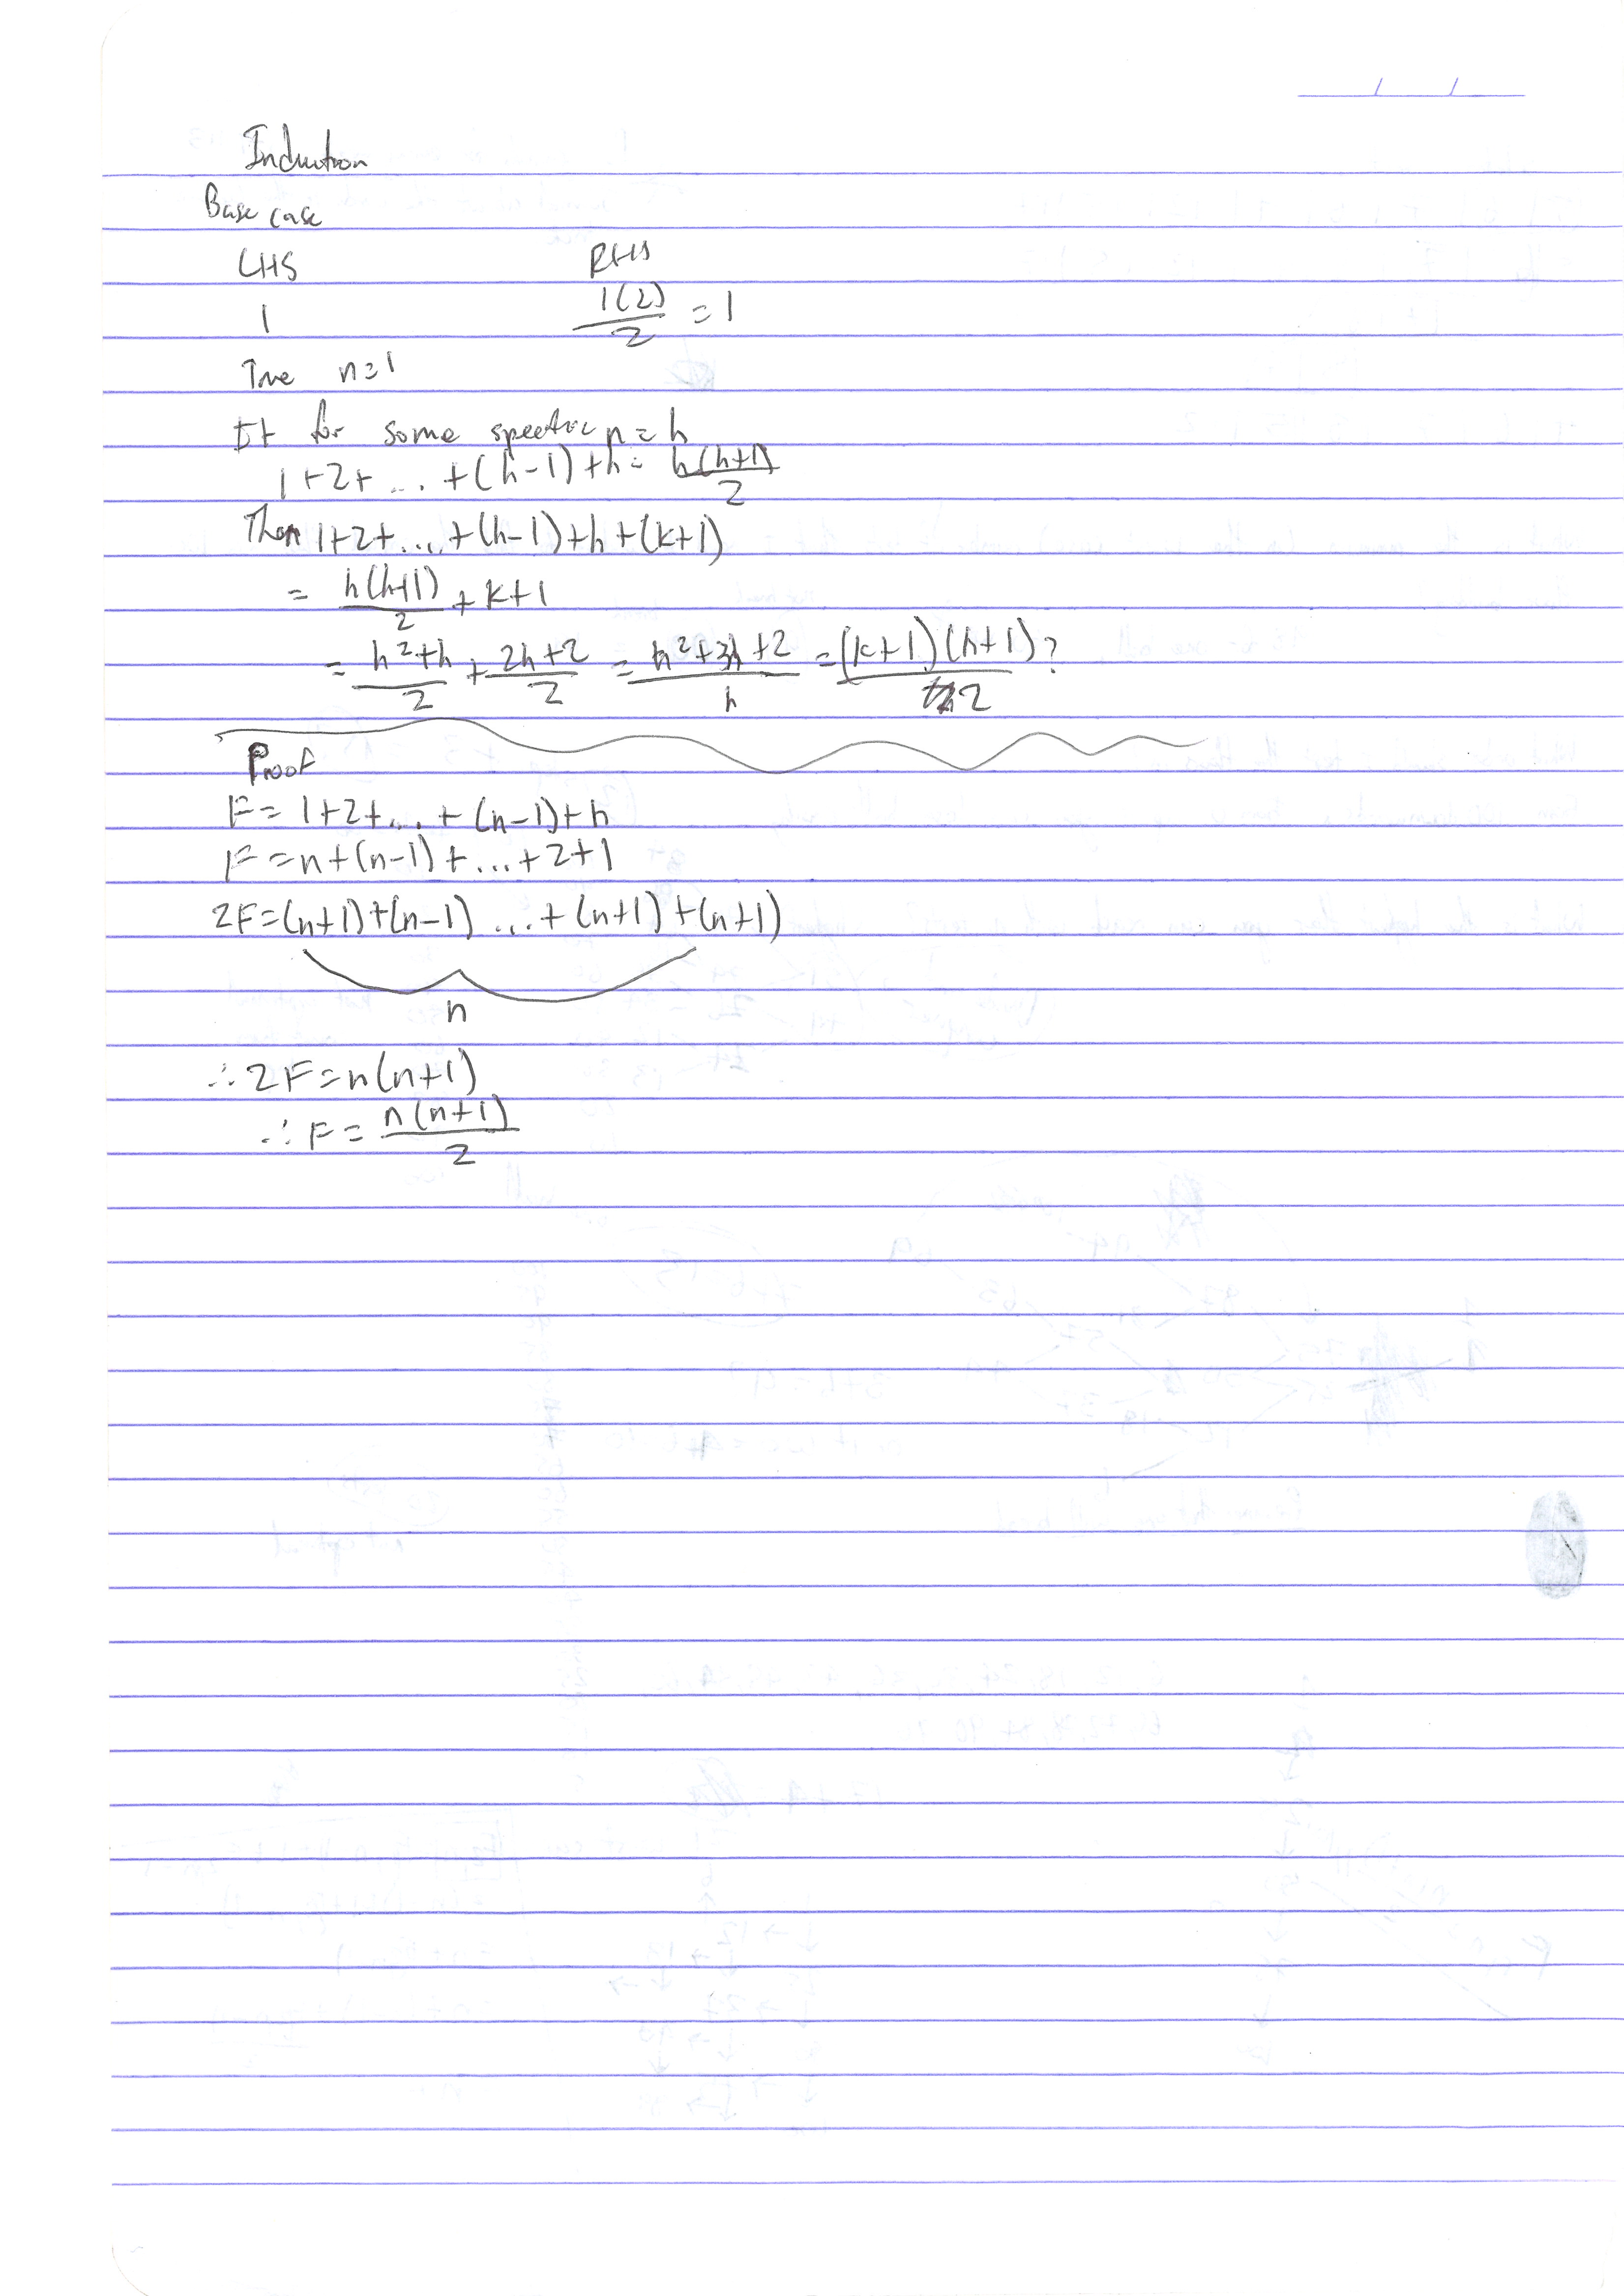 Induction
Base case
LHS RHS
1 1(2)/2 = 1
True n=1
If for some specific n = k
1+2+ ... +(k-1)+k = k(k+1)/2
Then 1+2+....+(k-1)+k+(k+1)
= k(k+1)/2 + k+1
= k²+k/2 + 2k+2/2 = k²+3k+2/k = (k+1)(k+1)/2 ?
Proof
F = 1+2+... + (n-1)+n
F = n+(n-1)+...+2+1
2F=(n+1)+(n-1) ...+(n+1)+(n+1)
n
∴ 2F=n(n+1)
∴ F = n(n+1)/2